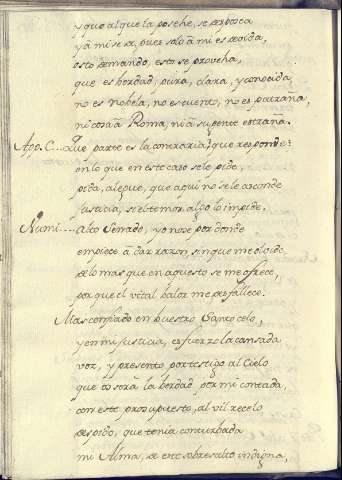 y que al que la posehe, se aproveca
y à mi se sa, pues solo à mi es devida,
esto demando, esto se provecha,
que es berdad, pura, clara, y conocida,
no es Nobela, no es cuento, no es patraña,
ni cosa à Roma, ni à su gente estraña.
App.C... Que parte es la contraria? que responde
en lo que en este caso se le pide,
pida, alegue, que aqui no se le asconde
justicia, si el temor algo lo impide.
Numi.... Alto Senado, yo no se por donde
empiece à dar razon sin que me olvide
de lo mas que en aquesto se me ofrece,
por que el vital balor me desfallece.
Mas confiado en buestro Santo celo,
y en mi justicia, esfuerzo la cansada
voz, y presento por testigo al Cielo
que no sera la berdad por mi contada,
con este prosupuesto, al vil recelo
despido, que tenia conturbada
mi Alma, de este sobresalto indigna,